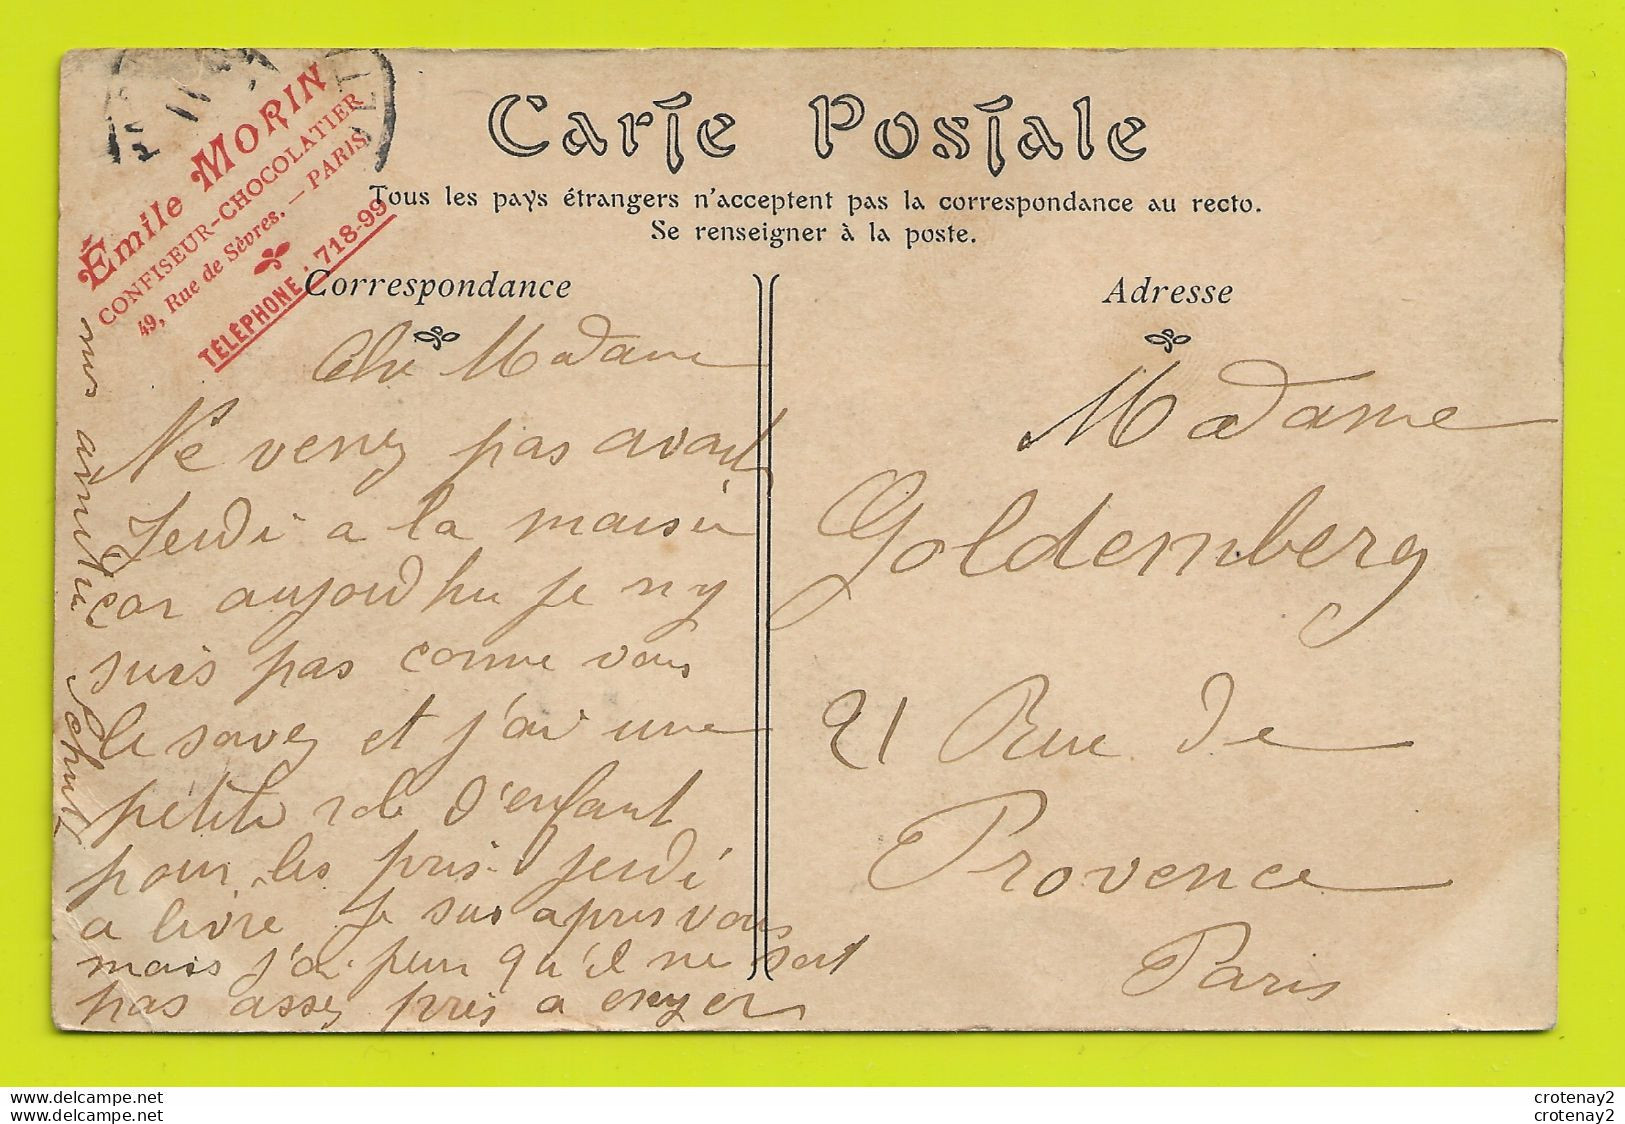 Émile MORIN
CONFISEUR-CHOCOLATIER
49, Rue de Sèvres. — PARIS
TÉLÉPHONE : 718-99
Carte Postale
Tous les pays étrangers n'acceptent pas la correspondance au recto.
Se renseigner à la poste.
Correspondance
Adresse
Che Madame
Ne venez pas avant
Jeudi a la maison
car aujourdhu je n y
suis pas comme vous
le savez et j'ai une
petite robe d'enfant
pour les pris jeudi
a livre je suis apres vous
mais j'ai peur qu'il ne soit
pas assez près a esayer
Madame
Goldemberg
21 Rue de
Provence
Paris
crotenay2
crotenay2